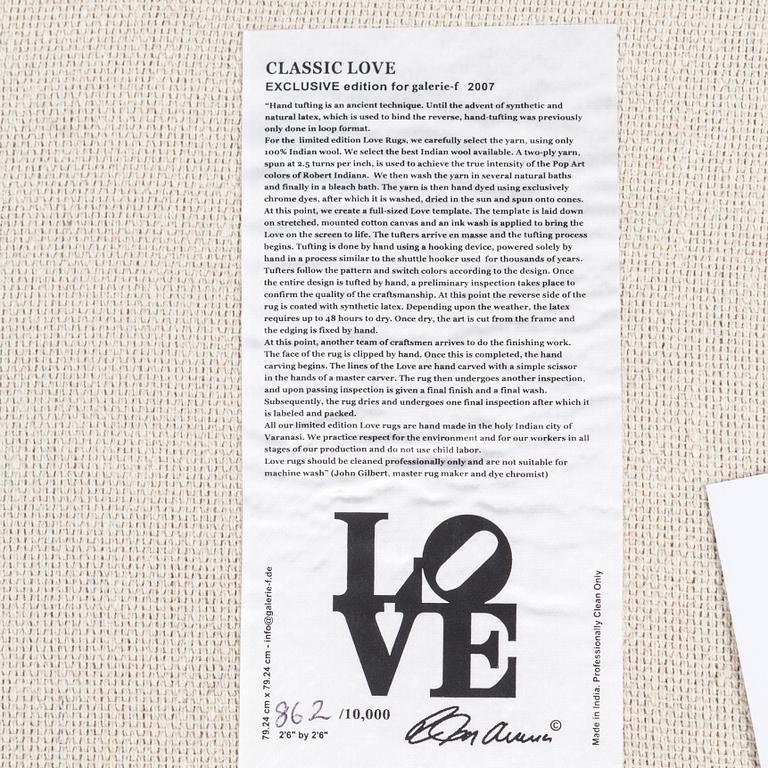 CLASSIC LOVE
EXCLUSIVE edition for galerie-f 2007
"Hand tufting is an ancient technique. Until the advent of synthetic and
natural latex, which is used to bind the reverse, hand-tufting was previously
only done in loop format.
For the limited edition Love Rugs, we carefully select the yarn, using only
100% Indian wool. We select the best Indian wool available. A two-ply yarn,
spun at 2.5 turns per inch, is used to achieve the true intensity of the Pop Art
colors of Robert Indiana. We then wash the yarn in several natural baths
and finally in a bleach bath. The yarn is then hand dyed using exclusively
chrome dyes, after which it is washed, dried in the sun and spun onto cones.
At this point, we create a full-sized Love template. The template is laid down
on stretched, mounted cotton canvas and an ink wash is applied to bring the
Love on the screen to life. The tufters arrive en masse and the tufting process
begins. Tufting is done by hand using a hooking device, powered solely by
hand in a process similar to the shuttle hooker used for thousands of years.
Tufters follow the pattern and switch colors according to the design. Once
the entire design is tufted by hand, a preliminary inspection takes place to
confirm the quality of the craftsmanship. At this point the reverse side of the
rug is coated with synthetic latex. Depending upon the weather, the latex
requires up to 48 hours to dry. Once dry, the art is cut from the frame and
the edging is fixed by hand.
At this point, another team of craftsmen arrives to do the finishing work.
The face of the rug is clipped by hand. Once this is completed, the hand
carving begins. The lines of the Love are hand carved with a simple scissor
in the hands of a master carver. The rug then undergoes another inspection,
and upon passing inspection is given a final finish and a final wash.
Subsequently, the rug dries and undergoes one final inspection after which it
is labeled and packed.
All our limited edition Love rugs are hand made in the holy Indian city of
Varanasi. We practice respect for the environment and for our workers in all
stages of our production and do not use child labor.
Love rugs should be cleaned professionally only and are not suitable for
machine wash" (John Gilbert, master rug maker and dye chromist)
LO
VE
79.24 cm x 79.24 cm - info@galerie-f.de
862 /10,000
2'6" by 2'6"
©
Made in India. Professionally Clean Only